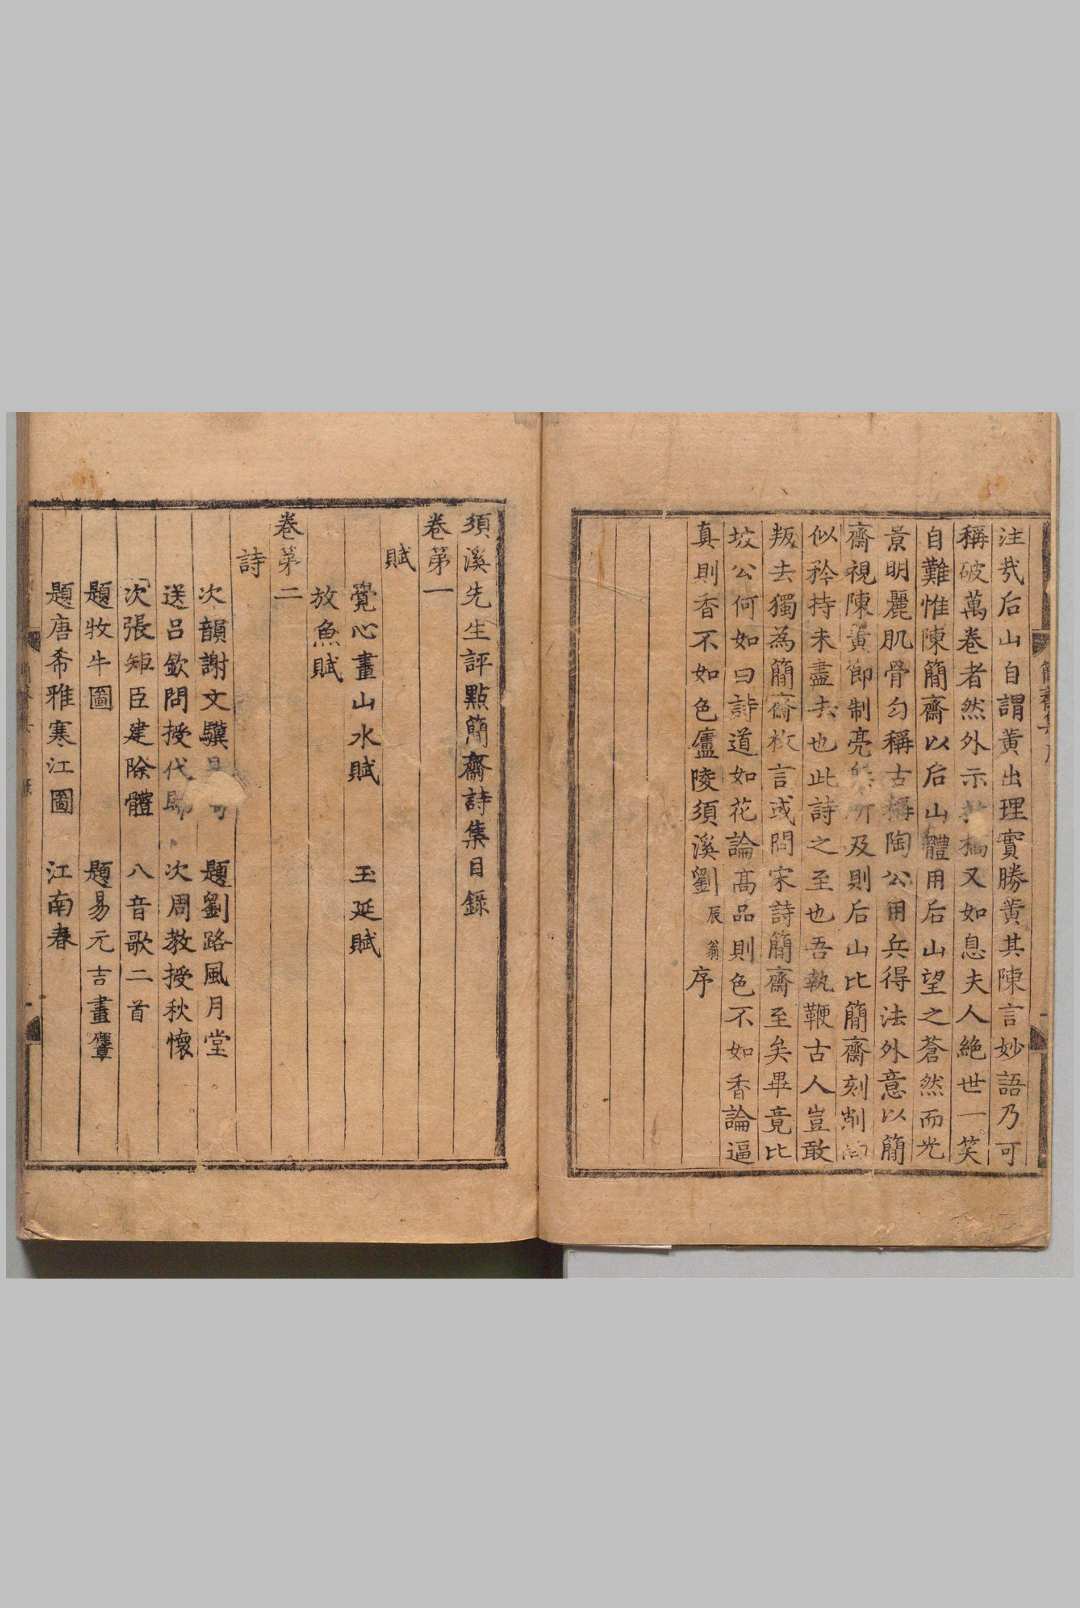 注哉后山自謂黃出理實勝黃其陳言妙語乃可
稱破萬卷者然外示枯槁又如息夫人絶世一笑
自難惟陳簡齋以后山體用后山望之蒼然而光
景明麗肌骨匀稱古稱陶公用兵得法外意以簡
齋視陳黃節制亮無所及則后山比簡齋刻削
似矜持未盡去也此詩之至也吾執鞭古人豈敢
叛去獨為簡齋言或問宋詩簡齋至矣畢竟比
坡公何如曰詩道如花論髙品則色不如香論逼
真則香不如色廬陵須溪劉辰翁序
須溪先生評點簡齋詩集目錄
卷第一
賦
覺心畫山水賦 玉延賦
放魚賦
卷第二
詩
次韻謝文驥 題劉路風月堂
送呂欽問授代歸 次周教授秋懷
次張矩臣建除體 八音歌二首
題牧牛圖 題易元吉畫麞
題唐希雅寒江圖 江南春